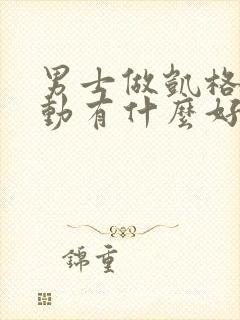 男士做凱格
動有什麼好
錦重